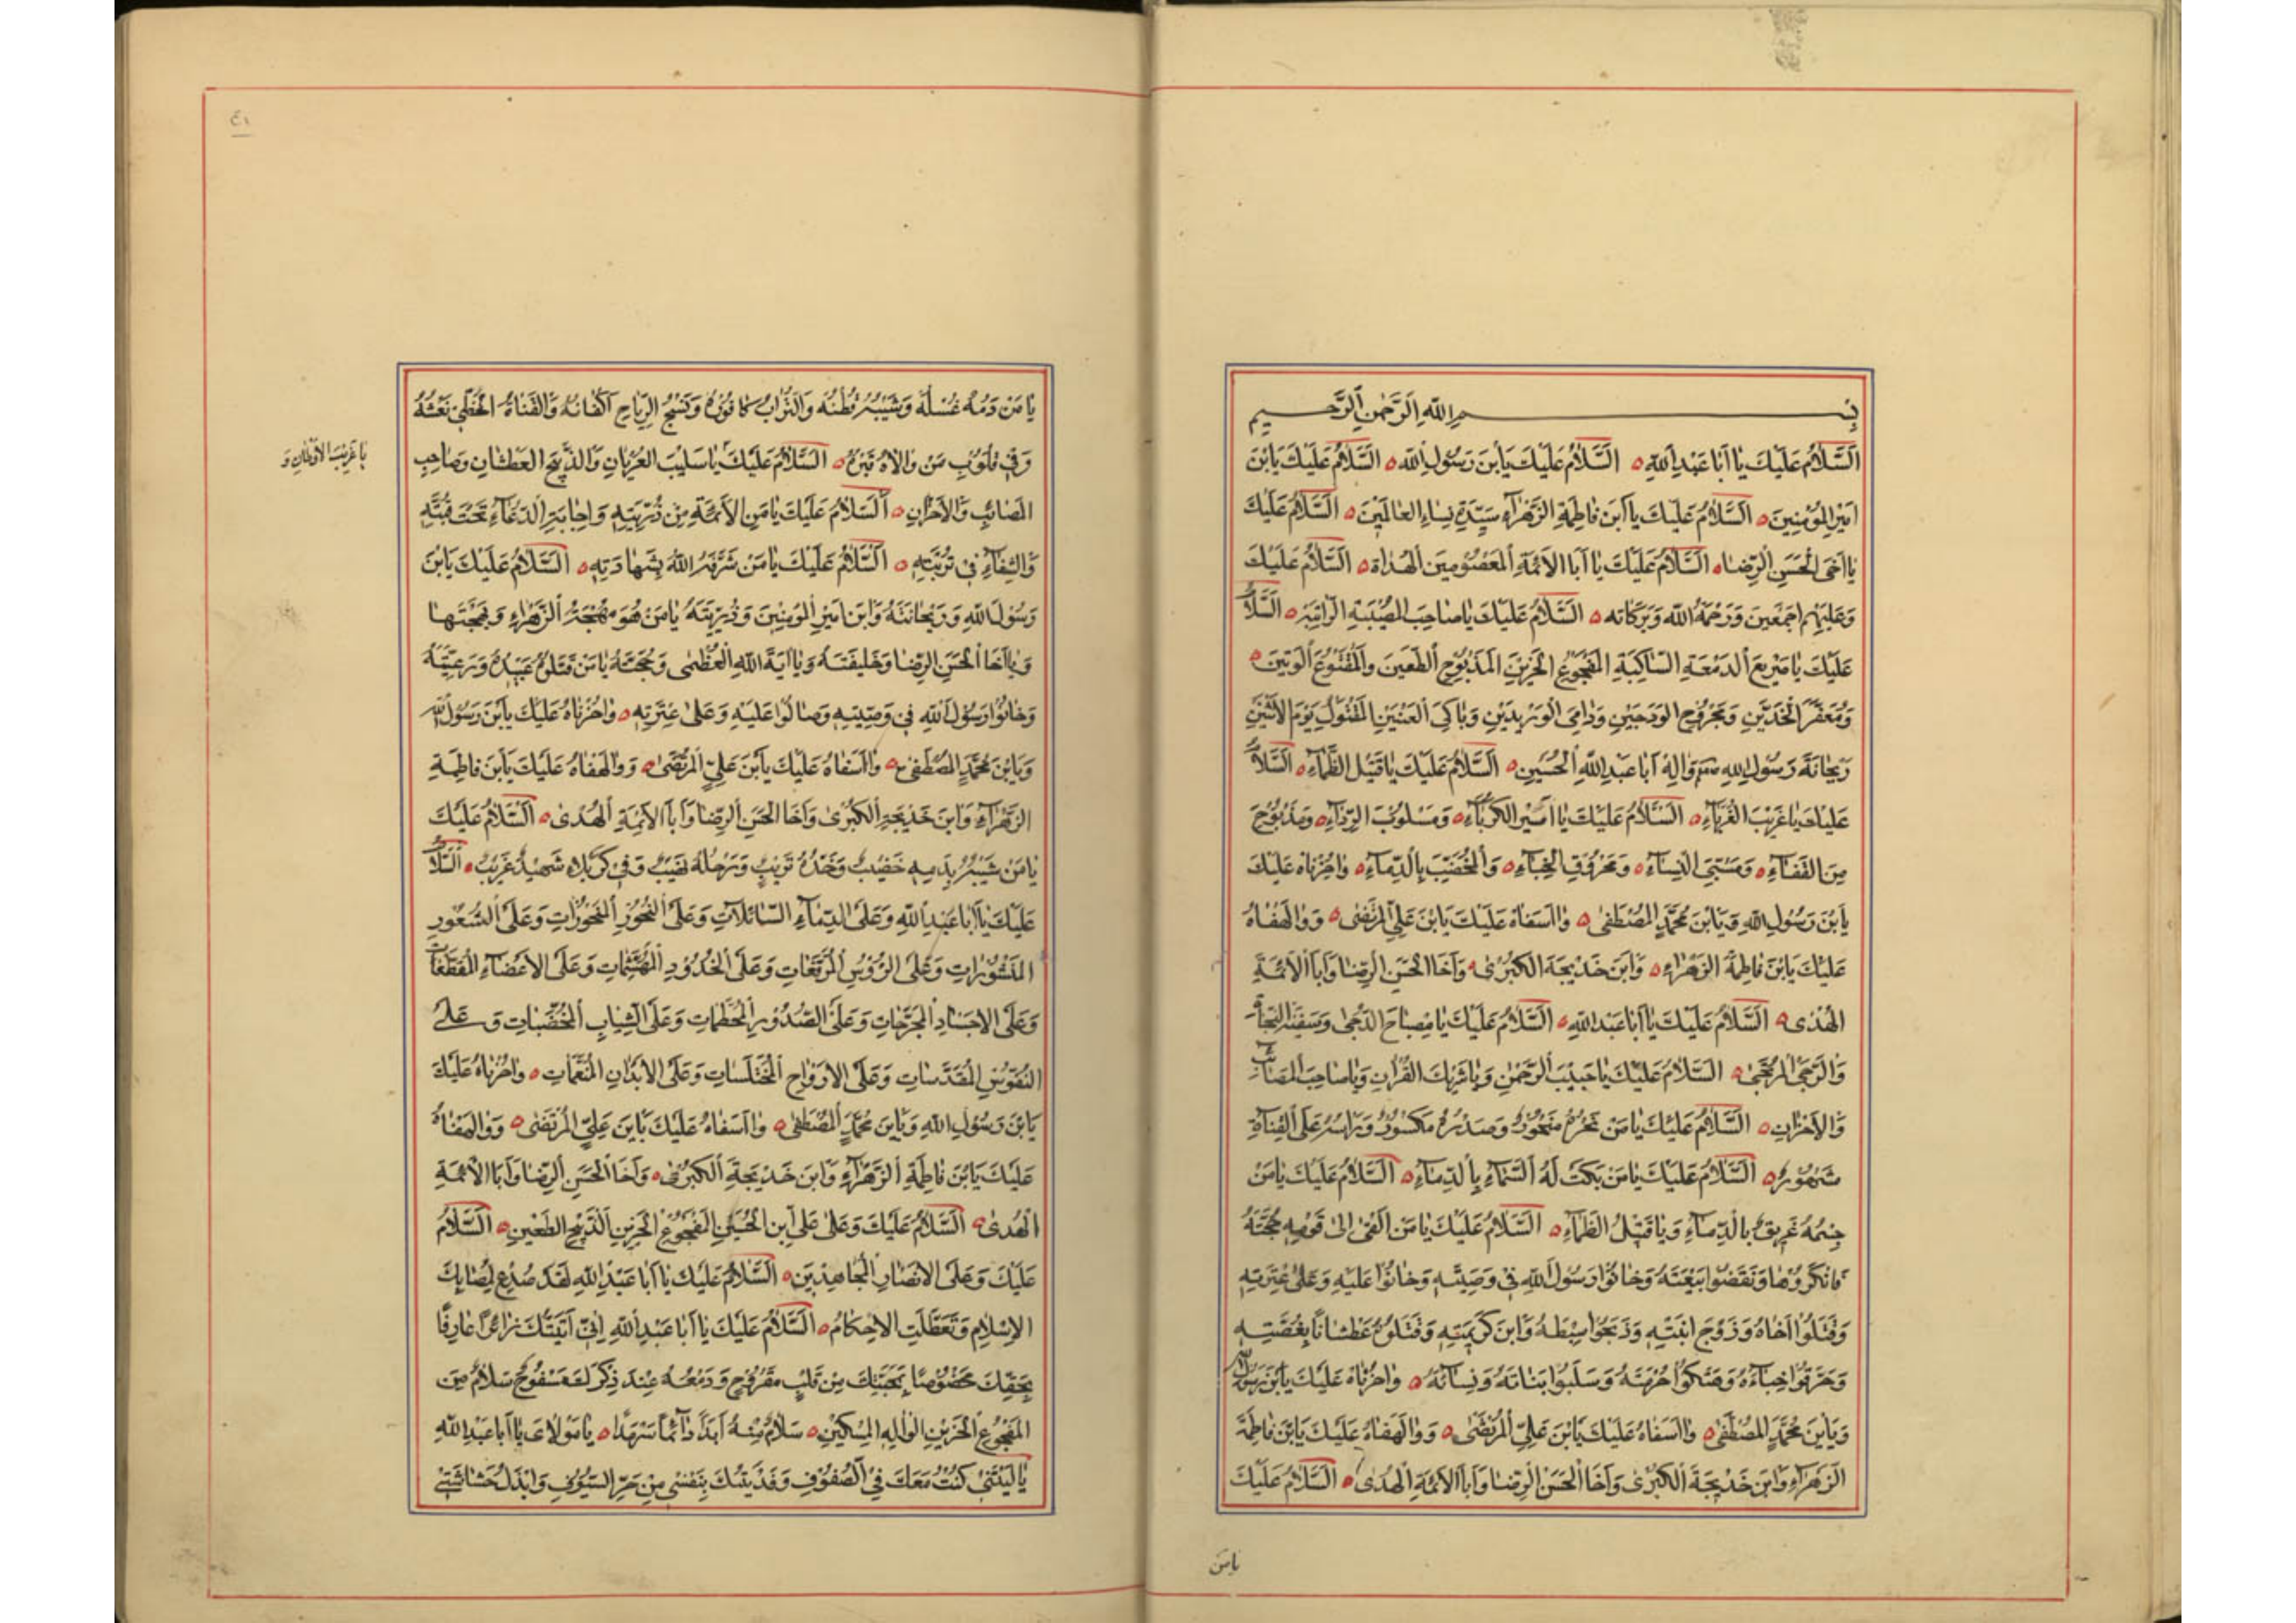 بِسْمِ اللّٰهِ الرَّحْمٰنِ الرَّحِيمِ
اَلسَّلَامُ عَلَيْكَ يَا اَبَا عَبْدِ اللّٰهِ ۝ اَلسَّلَامُ عَلَيْكَ يَابْنَ رَسُولِ اللّٰهِ ۝ اَلسَّلَامُ عَلَيْكَ يَابْنَ
اَمِيرِ الْمُؤْمِنِينَ ۝ اَلسَّلَامُ عَلَيْكَ يَا ابْنَ فَاطِمَةِ الزَّهْرَاءِ سَيِّدَةِ نِسَاءِ الْعَالَمِينَ ۝ اَلسَّلَامُ عَلَيْكَ
يَا اَخَى الْحَسَنِ الرِّضَا ۝ اَلسَّلَامُ عَلَيْكَ يَا اَبَا الْاَئِمَّةِ الْمَعْصُومِينَ الْهُدَاةِ ۝ اَلسَّلَامُ عَلَيْكَ
وَعَلَيْهِمْ اَجْمَعِينَ وَرَحْمَةُ اللّٰهِ وَبَرَكَاتُهُ ۝ اَلسَّلَامُ عَلَيْكَ يَا صَاحِبَ الْمُصِيبَةِ الرَّاتِبَةِ ۝ اَلسَّلَامُ
عَلَيْكَ يَا صَرِيعَ الدَّمْعَةِ السَّاكِبَةِ الْمَفْجُوعِ الْحَزِينِ الْمَذْبُوحِ الطَّعِينِ وَالْمَقْطُوعِ الْوَتِينِ ۝
وَمُعَفَّرَ الْخَدَّيْنِ وَمَجْرُوحِ الْوَدَجَيْنِ وَدَامِى الْوَرِيدَيْنِ وَبَاكِىَ الْعَيْنَيْنِ الْمَقْتُولِ يَوْمَ الْاِثْنَيْنِ
رَيْحَانَةَ رَسُولِ اللّٰهِ وَالِهِ اَبَا عَبْدِ اللّٰهِ الْحُسَيْنِ ۝ اَلسَّلَامُ عَلَيْكَ يَا قَتِيلَ الظَّمَاءِ ۝ اَلسَّلَامُ
عَلَيْكَ يَا غَرِيبَ الْغُرَبَاءِ ۝ اَلسَّلَامُ عَلَيْكَ يَا اَسِيرَ الْكُرَبَاءِ ۝ وَمَسْلُوبَ الرِّدَاءِ ۝ وَمَذْبُوحَ
مِنَ الْقَفَاءِ ۝ وَمَسْبِىَّ النِّسَاءِ ۝ وَمَحْرُوقَ الْخِبَاءِ ۝ وَالْمُخَضَّبَ بِالدِّمَاءِ ۝ وَاحُزْنَاهُ عَلَيْكَ
يَابْنَ رَسُولِ اللّٰهِ وَيَابْنَ مُحَمَّدٍ الْمُصْطَفٰى ۝ وَاأَسَفَاهُ عَلَيْكَ يَابْنَ عَلِيٍّ الْمُرْتَضٰى ۝ وَوَالَهْفَاهُ
عَلَيْكَ يَابْنَ فَاطِمَةَ الزَّهْرَاءِ ۝ وَابْنَ خَدِيجَةَ الْكُبْرٰى ۝ وَاَخَا الْحَسَنِ الرِّضَا وَاَبَا الْاَئِمَّةِ
الْهُدٰى ۝ اَلسَّلَامُ عَلَيْكَ يَا اَبَا عَبْدِ اللّٰهِ ۝ اَلسَّلَامُ عَلَيْكَ يَا مِصْبَاحَ الدُّجٰى وَسَفِينَةَ النَّجَاةِ
وَالرَّجَى الْمُرْتَجٰى ۝ اَلسَّلَامُ عَلَيْكَ يَا حَبِيبَ الرَّحْمٰنِ وَيَا شَرِيكَ الْقُرْاٰنِ وَيَا صَاحِبَ الْمَصَائِبِ
وَالْاَحْزَانِ ۝ اَلسَّلَامُ عَلَيْكَ يَا مَنْ نَحْرُهُ مَنْحُورٌ وَصَدْرُهُ مَكْسُورٌ وَرَأْسُهُ عَلَى الْقَنَاةِ
مَشْهُورٌ ۝ اَلسَّلَامُ عَلَيْكَ يَا مَنْ بَكَتْ لَهُ السَّمَاءُ بِالدِّمَاءِ ۝ اَلسَّلَامُ عَلَيْكَ يَا مَنْ
جِسْمُهُ غَرِيقٌ بِالدِّمَاءِ وَيَا قَتِيلَ الظَّمَاءِ ۝ اَلسَّلَامُ عَلَيْكَ يَا مَنْ اَلْقٰى اِلٰى قَوْمِهِ حُجَّتَهُ
فَانْكَرُوهَا وَنَقَضُوا بَيْعَتَهُ وَخَانُوا رَسُولَ اللّٰهِ فِى وَصِيَّتِهِ وَخَانُوا عَلَيْهِ وَعَلٰى عِتْرَتِهِ
وَقَتَلُوا اَخَاهُ وَزَوْجَ ابْنَتِهِ وَذَبَحُوا سِبْطَهُ وَابْنَ كَرِيمَتِهِ وَقَتَلُوهُ عَطْشَانًا بِغُصَّتِهِ
وَحَرَقُوا خِبَاءَهُ وَهَتَكُوا حُرْمَتَهُ وَسَلَبُوا بَنَاتَهُ وَنِسَائَهُ ۝ وَاحُزْنَاهُ عَلَيْكَ يَابْنَ رَسُولِ اللّٰهِ
وَيَابْنَ مُحَمَّدٍ الْمُصْطَفٰى ۝ وَاأَسَفَاهُ عَلَيْكَ يَابْنَ عَلِيٍّ الْمُرْتَضٰى ۝ وَوَالَهْفَاهُ عَلَيْكَ يَابْنَ فَاطِمَةَ
الزَّهْرَاءِ وَابْنَ خَدِيجَةَ الْكُبْرٰى وَاَخَا الْحَسَنِ الرِّضَا وَاَبَا الْاَئِمَّةِ الْهُدٰى ۝ اَلسَّلَامُ عَلَيْكَ
يَا مَنْ
٤١
يَا مَنْ دَمُهُ غُسْلُهُ وَشَيْبُهُ قُطْنُهُ وَالتُّرَابُ كَافُورُهُ وَنَسْجُ الرِّيَاحِ اَكْفَانُهُ وَالْقَنَاةُ الْخَطِّىُّ نَعْشُهُ
وَفِى قُلُوبِ مَنْ وَالَاهُ قَبْرُهُ ۝ اَلسَّلَامُ عَلَيْكَ يَا سَلِيبَ الْعُرْيَانِ وَالذَّبِيحَ الْعَطْشَانِ وَصَاحِبَ
يَا غَرِيبَ الْاَوْطَانِ وَ
الْمَصَائِبِ وَالْاَحْزَانِ ۝ اَلسَّلَامُ عَلَيْكَ يَا مَنِ الْاَئِمَّةِ مِنْ ذُرِّيَّتِهِ وَاِجَابَةِ الدُّعَاءِ تَحْتَ قُبَّتِهِ
وَالشِّفَاءِ فِى تُرْبَتِهِ ۝ اَلسَّلَامُ عَلَيْكَ يَا مَنْ شَرَّفَهُ اللّٰهُ بِشَهَادَتِهِ ۝ اَلسَّلَامُ عَلَيْكَ يَابْنَ
رَسُولِ اللّٰهِ وَرَيْحَانَتَهُ وَابْنَ اَمِيرِ الْمُؤْمِنِينَ وَذُرِّيَّتَهُ يَا مَنْ هُوَ مُهْجَةُ الزَّهْرَاءِ وَبَهْجَتَهَا
وَيَا اَخَا الْحَسَنِ الرِّضَا وَخَلِيفَتَهُ وَيَا اٰيَةَ اللّٰهِ الْعُظْمٰى وَحُجَّتَهُ يَا مَنْ قَتَلُوهُ عَبِيدُهُ وَرَعِيَّتُهُ
وَخَانُوا رَسُولَ اللّٰهِ فِى وَصِيَّتِهِ وَصَالُوا عَلَيْهِ وَعَلٰى عِتْرَتِهِ ۝ وَاحُزْنَاهُ عَلَيْكَ يَابْنَ رَسُولِ اللّٰهِ
وَيَابْنَ مُحَمَّدٍ الْمُصْطَفٰى ۝ وَاأَسَفَاهُ عَلَيْكَ يَابْنَ عَلِيٍّ الْمُرْتَضٰى ۝ وَوَالَهْفَاهُ عَلَيْكَ يَابْنَ فَاطِمَةِ
الزَّهْرَاءِ وَابْنَ خَدِيجَةِ الْكُبْرٰى وَاَخَا الْحَسَنِ الرِّضَا وَاَبَا الْاَئِمَّةِ الْهُدٰى ۝ اَلسَّلَامُ عَلَيْكَ
يَا مَنْ شَيْبُهُ بِدَمِهِ خَضِيبٌ وَخَدُّهُ تَرِيبٌ وَرَحْلُهُ نَهِيبٌ وَفِى كَرْبَلَاءِ شَهِيدٌ غَرِيبٌ ۝ اَلسَّلَامُ
عَلَيْكَ يَا اَبَا عَبْدِ اللّٰهِ وَعَلَى الدِّمَاءِ السَّائِلَاتِ وَعَلَى النُّحُورِ الْمَنْحُورَاتِ وَعَلَى الشُّعُورِ
الْمَنْشُورَاتِ وَعَلَى الرُّؤُسِ الْمُرَفَّعَاتِ وَعَلَى الْخُدُودِ الْمُهَشَّمَاتِ وَعَلَى الْاَعْضَاءِ الْمُقَطَّعَاتِ
وَعَلَى الْاَجْسَادِ الْمُجَرَّحَاتِ وَعَلَى الصُّدُورِ الْمُحَطَّمَاتِ وَعَلَى الشِّيَابِ الْمُخَضَّبَاتِ وَ عَلَى
النُّفُوسِ الْمُقَدَّسَاتِ وَعَلَى الْاَرْوَاحِ الْمُخْتَلَسَاتِ وَعَلَى الْاَبْدَانِ الْمُنَعَّمَاتِ ۝ وَاحُزْنَاهُ عَلَيْكَ
يَابْنَ رَسُولِ اللّٰهِ وَيَابْنَ مُحَمَّدٍ الْمُصْطَفٰى ۝ وَاأَسَفَاهُ عَلَيْكَ يَابْنَ عَلِيٍّ الْمُرْتَضٰى ۝ وَوَالَهْفَاهُ
عَلَيْكَ يَابْنَ فَاطِمَةِ الزَّهْرَاءِ وَابْنَ خَدِيجَةَ الْكُبْرٰى ۝ وَاَخَا الْحَسَنِ الرِّضَا وَاَبَا الْاَئِمَّةِ
الْهُدٰى ۝ اَلسَّلَامُ عَلَيْكَ وَعَلٰى عَلِى ابْنِ الْحُسَيْنِ الْمَفْجُوعِ الْحَزِينِ الذَّبِيحِ الطَّعِينِ ۝ اَلسَّلَامُ
عَلَيْكَ وَعَلَى الْاَنْصَارِ الْمُجَاهِدِينَ ۝ اَلسَّلَامُ عَلَيْكَ يَا اَبَا عَبْدِ اللّٰهِ لَقَدْ صُدِعَ لِمُصَابِكَ
الْاِسْلَامِ وَتَعَطَّلَتِ الْاَحْكَامُ ۝ اَلسَّلَامُ عَلَيْكَ يَا اَبَا عَبْدِ اللّٰهِ اِنِّى اَتَيْتُكَ زَائِرًا عَارِفًا
بِحَقِّكَ مَخْصُوصًا بِمَحَبَّتِكَ مِنْ قَلْبٍ مَقْرُوحٍ وَدَمْعُهُ عِنْدَ ذِكْرِكَ مَسْفُوحٌ سَلَامٌ مِنَ
الْمَفْجُوعِ الْحَزِينِ الْوَالِهِ الْمِسْكِينِ ۝ سَلَامٌ مِنْهُ اَبَدًا دَائِمًا سَرْمَدًا ۝ يَا مَوْلَاىَ يَا اَبَا عَبْدِ اللّٰهِ
يَا لَيْتَنِى كُنْتُ مَعَكَ فِى الصُّفُوفِ وَفَدَيْتُكَ بِنَفْسِى مِنْ حَرِّ السُّيُوفِ وَابْذُلُ حُشَاشَتِى